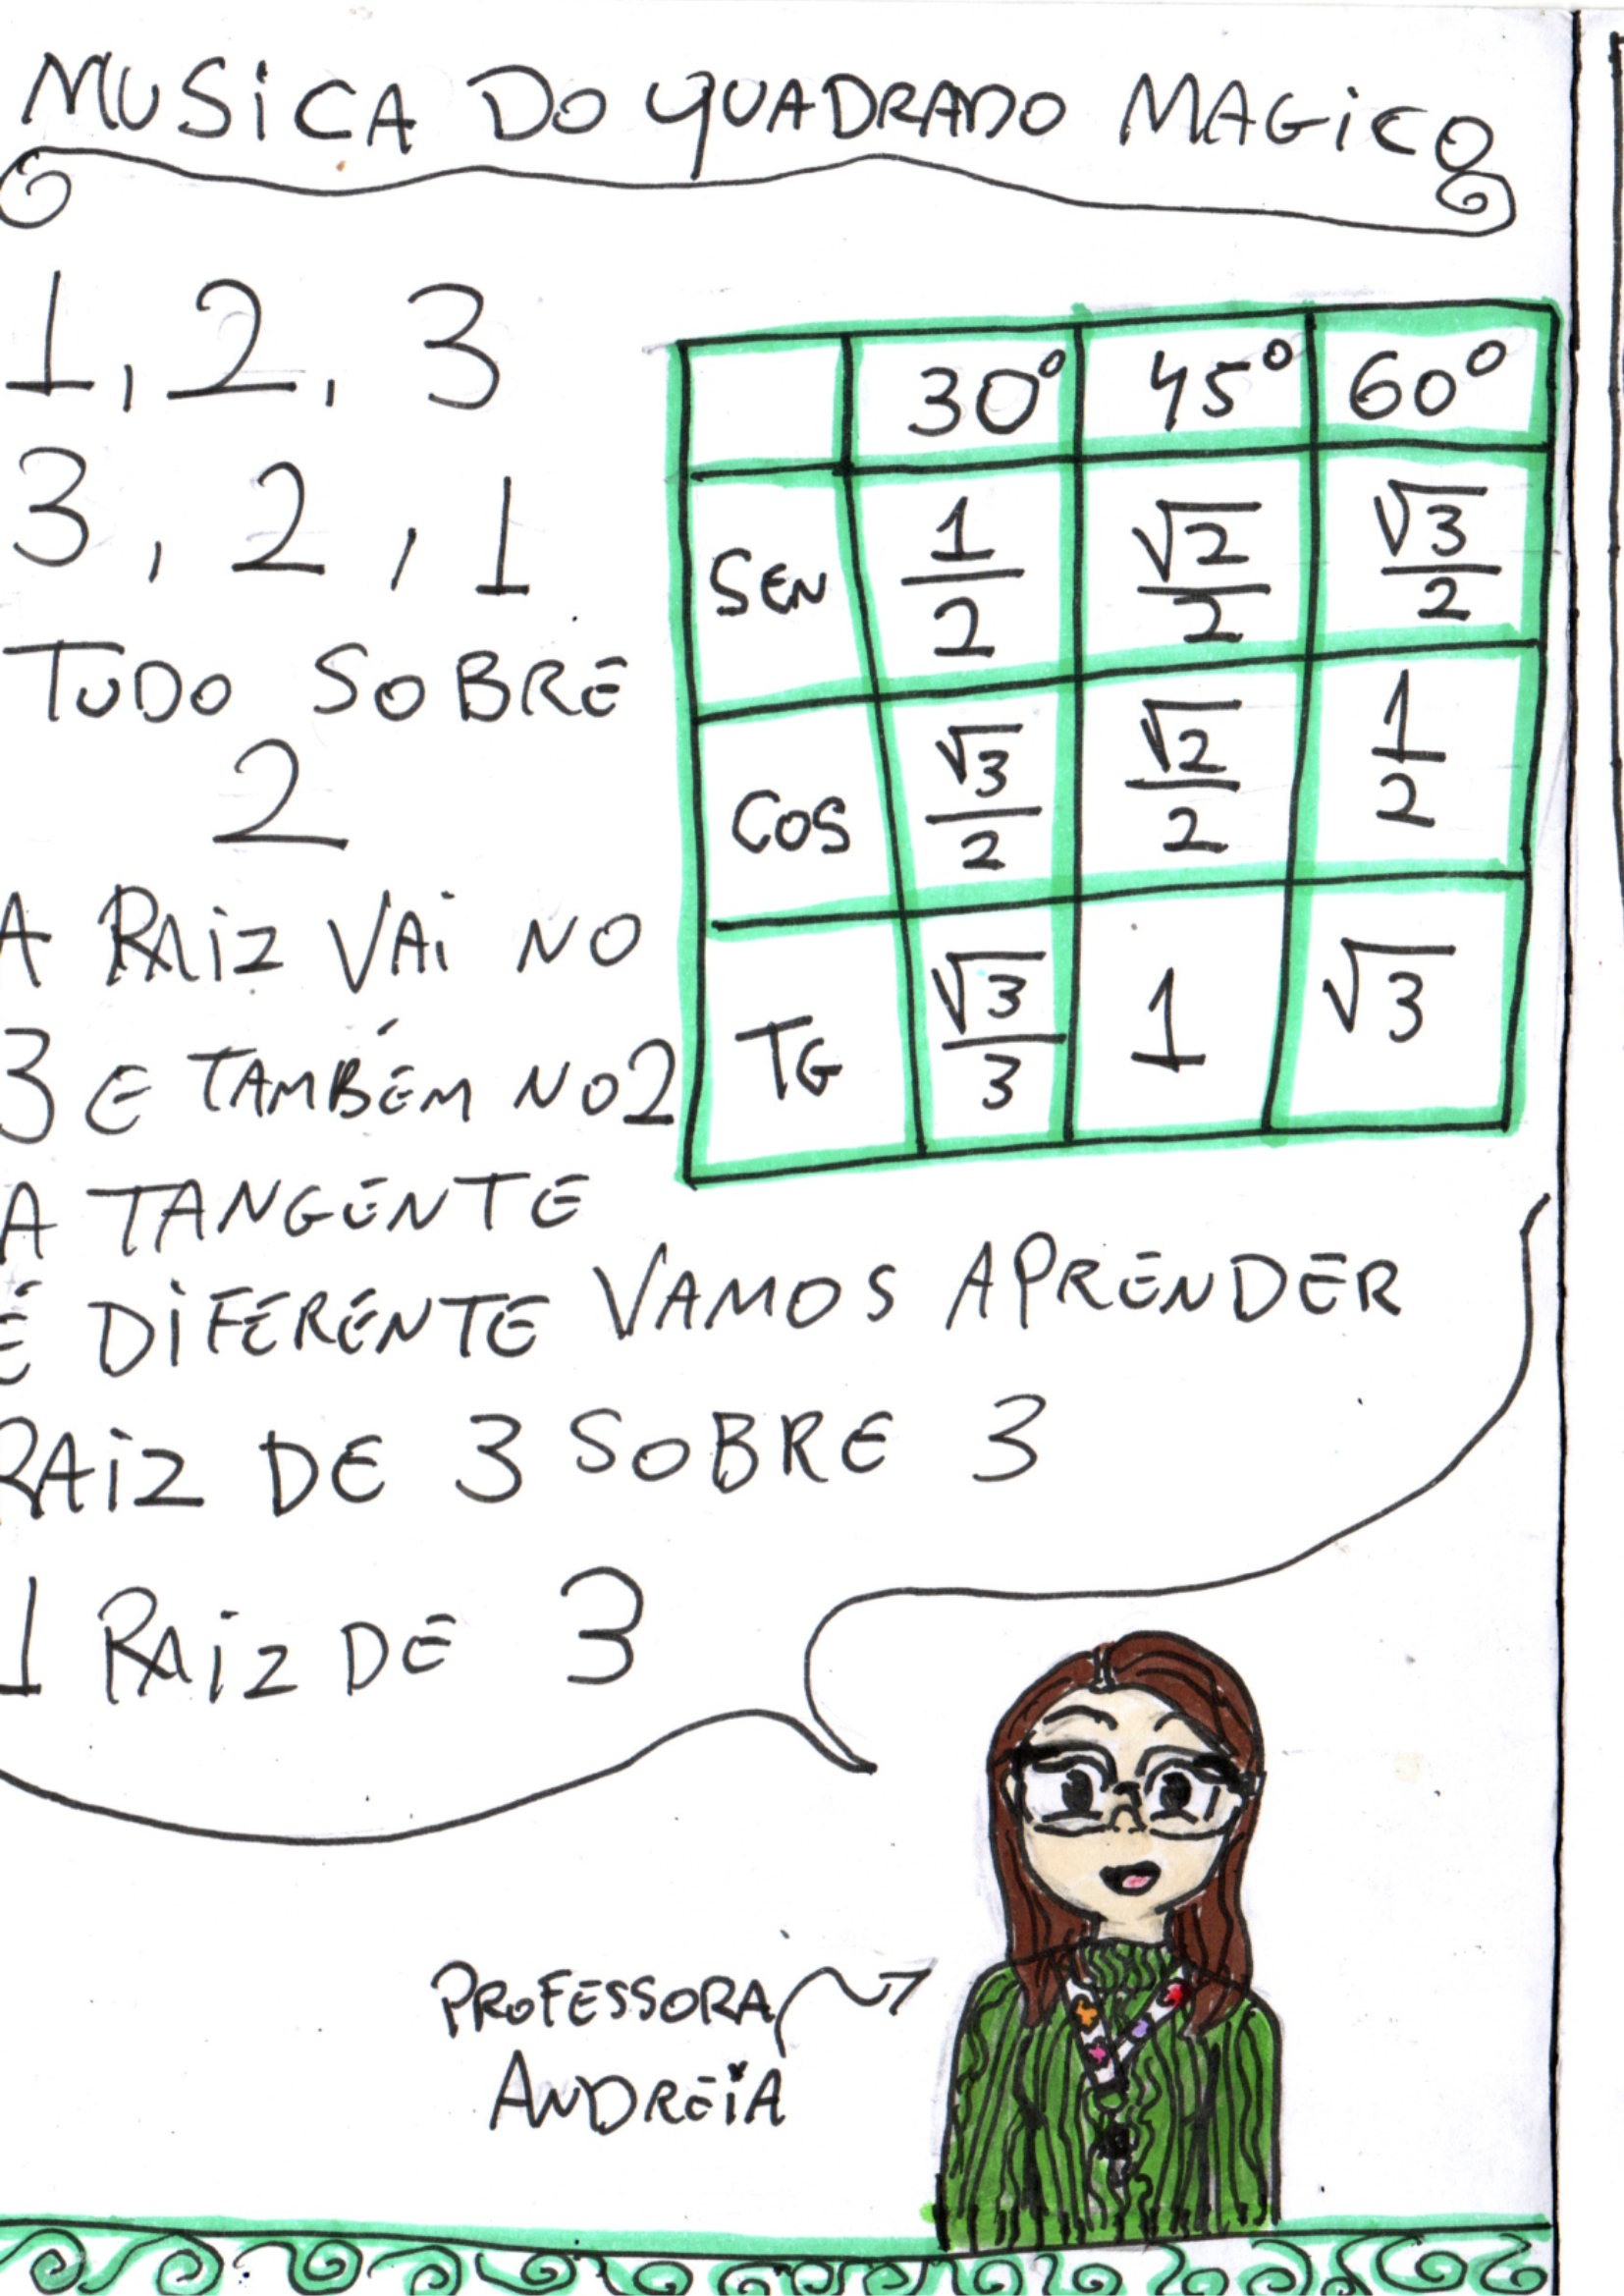 MUSiCA DO QUADRADO MAGiCO
1, 2, 3
3, 2, 1
TUDO SOBRE
2
A RAiZ VAi NO
3 E TAMBÉM NO 2
A TANGENTE
É DiFERENTE VAMOS APRENDER
RAiZ DE 3 SOBRE 3
1 RAiZ DE 3
30° 45° 60°
SEN 1/2 √2/2 √3/2
COS √3/2 √2/2 1/2
TG √3/3 1 √3
PROFESSORA
ANDREiA